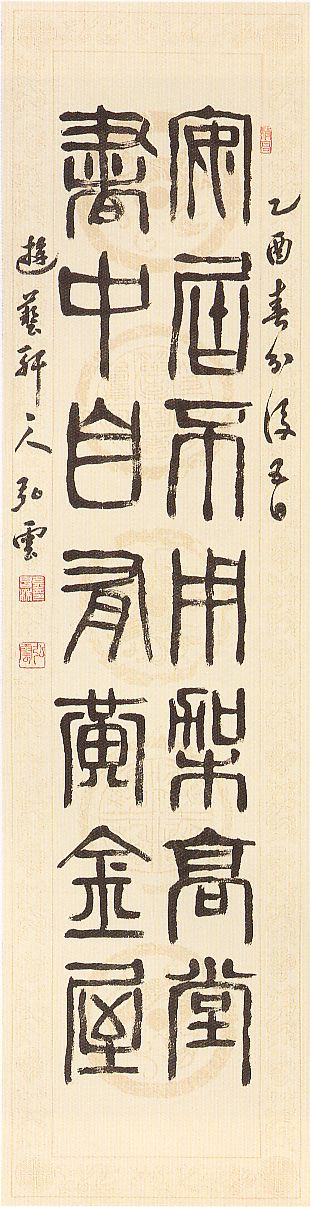 乙酉春分後五日
安居不用架高堂
書中自有黃金屋
遊藝軒主人弘雲